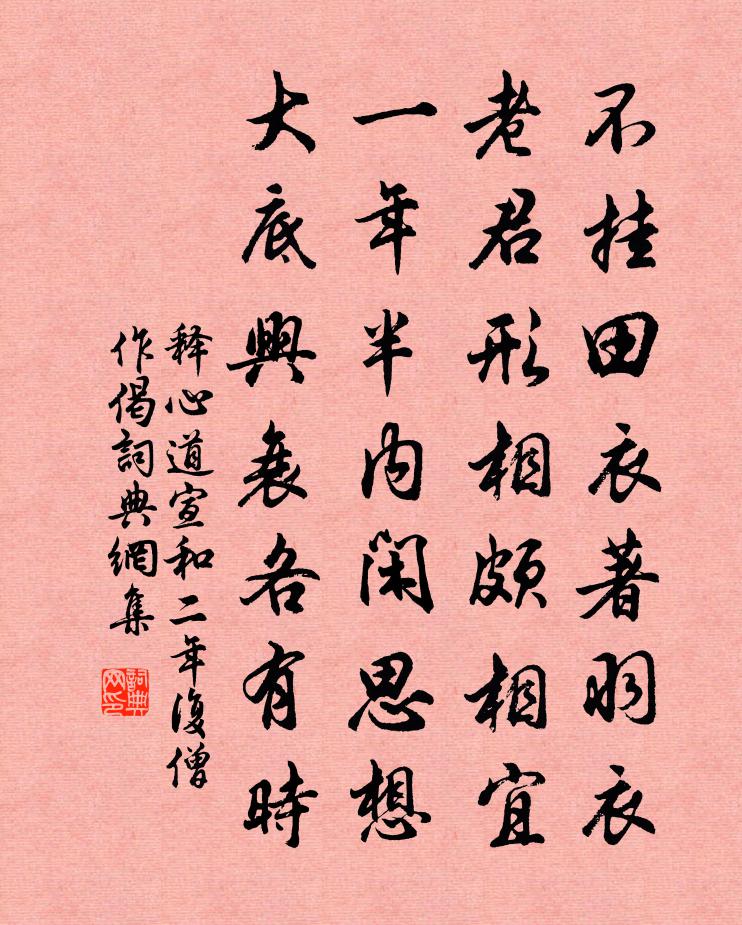 不挂田衣著羽衣
老君形相頗相宜
一年半内閑思想
大底興衰各有時
释心道宣和二年復僧
作偈詞典網集
詞典网印